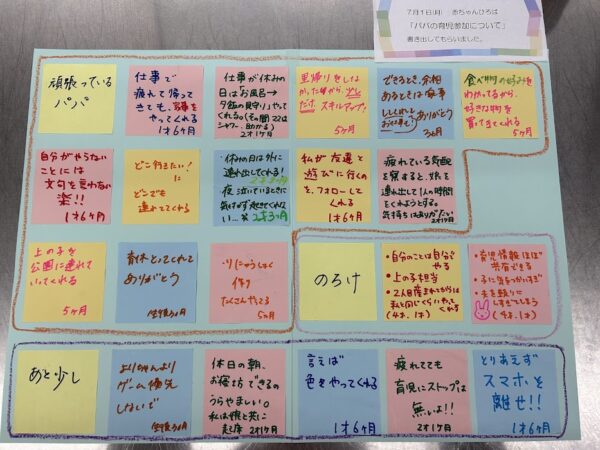 7月1日(月) 赤ちゃんひろば
「パパの育児参加について」
書き出してもらいました。
頑張っている
パパ
仕事で
疲れて帰って
きても、家事を
やってくれる
1才6ヶ月
仕事が休みの
日はお風呂→
夕飯の見守りやって
くれる。(その間ママは
シャワー、助かる)
2才1ヶ月
里帰りをしな
かった時から、どんどん
スキルアップ!
5ヶ月
できるとき、余裕
あるときは家事
ありがとう
3ヵ月
食べ物の好みを
わかってるから、
好きな物を
買ってきてくれる
5ヶ月
自分がやらない
ことには
文句を言わない
楽!!
1才6ヶ月
どこ行きたい!
に
どこでも
連れてってくれる
休みの日は外に
連れ出してくれる!
夜泣いているときに
気付かず起きてくれな
い…
2才3ヶ月
私が友達と
遊びに行くの
を、フォローして
くれる
1才6ヶ月
疲れている気配
を察すると、娘を
連れ出して1人の時間を
くれようとする。
気持ちはありがたい
2才1ヶ月
上の子を
公園に連れて
いってくれる
5ヶ月
育休とってくれて
ありがとう
りにゅうしょく
作り
たくさんやってる
5ヵ月
のろけ
・自分のことは自分で
やる
・上の子担当
・2人目産まれてからは
私と同じぐらいやって
くれる
(4才、1才)
・育児情報ほぼ
共有できる
・子に気をつかいすぎ
・夫を頼りに
しすぎてしまう
(4才、1才)
あと少し
よりちゃんより
ゲーム優先
しないで
休日の朝、
お寝坊できるの
うらやましい。
私は娘と共に
起床
2才1ヶ月
言えば
色々やってくれる
1才6ヶ月
疲れてても
育児にストップは
無いよ!!
2才1ヶ月
とりあえず
スマホを
離せ!!
1才6ヶ月